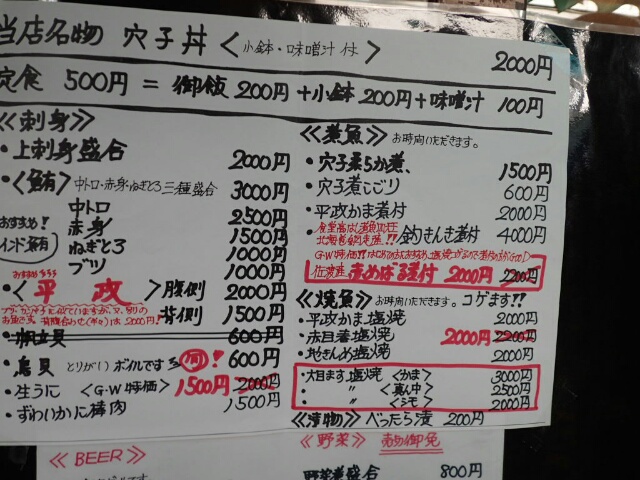 当店名物 穴子丼 <小鉢・味噌汁付> 2000円
定食 500円 = 御飯 200円 + 小鉢 200円 + 味噌汁 100円
≪刺身≫
・上刺身盛合 2000円
・<鮪> 中トロ・赤身・ねぎとろ三種盛合 3000円
中トロ 2500円
赤身 1500円
ねぎとろ 1000円
ブツ 1000円
おすすめ!
インド鮪
・<平政> 腹側 2000円
背側 1500円
600円
・鳥貝 とりがい ボイルです 600円
・生うに <G・W特価> 1500円 2000円
・ずわいかに棒肉 1500円
≪煮魚≫ お時間いただきます。
・穴子柔らか煮、 1500円
・穴子煮こごり 600円
・平政かま煮付 2000円
釣きんき煮付 4000円
佐渡産 赤めばる煮付 2000円 2200円
≪焼魚≫ お時間いただきます。コゲます!!
・平政かま塩焼 2000円
・赤目香塩焼 2000円 2200円
・地きんめ塩焼 2000円
・大目ます塩焼 <かま> 3000円
・ 〃 <真ん中> 2500円
・ 〃 <シモ> 2000円
≪漬物≫ べったら漬 200円
≪野菜≫ 売切御免
野菜煮盛合 800円
≪BEER≫